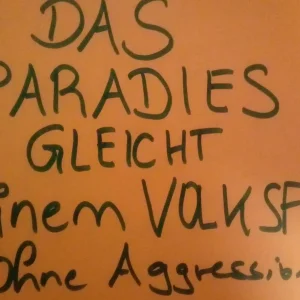 DAS
PARADIES
GLEICHT
inem VOLKSF
Ohne Aggressio